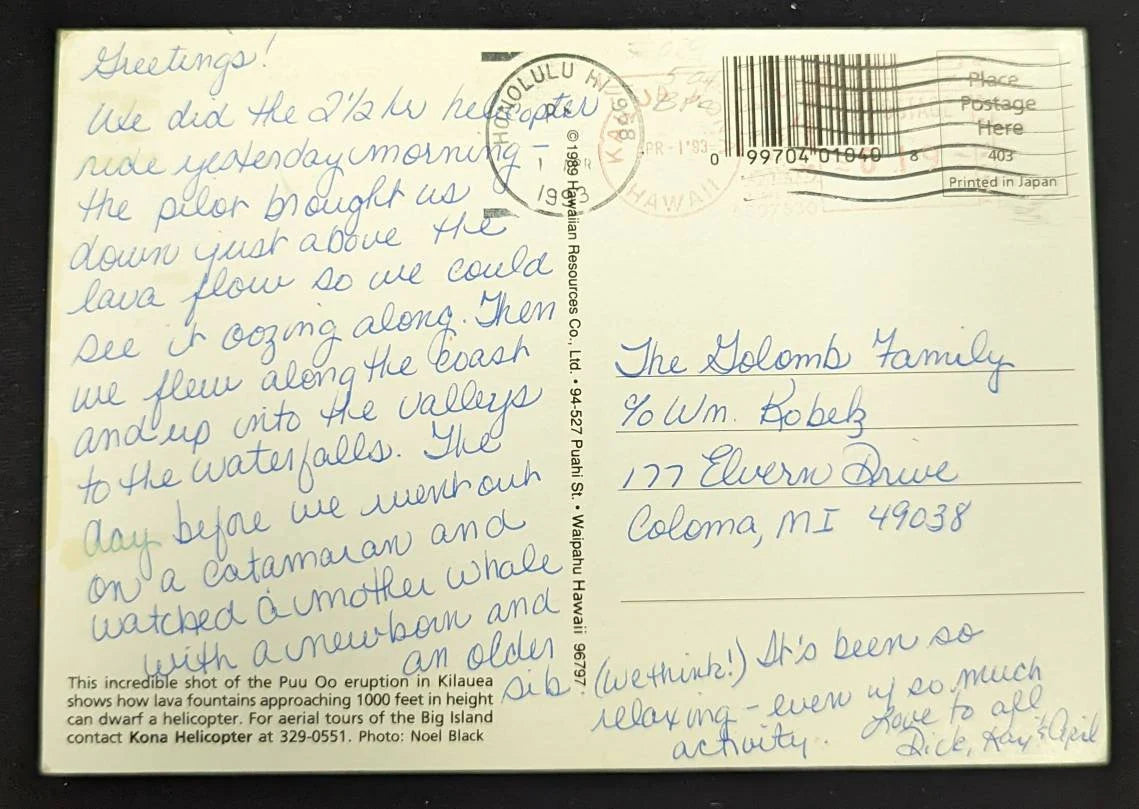 Greetings!
We did the 2 1/2 hr helicopter
ride yesterday morning -
the pilot brought us
down just above the
lava flow so we could
see it oozing along. Then
we flew along the coast
and up into the valleys
to the waterfalls. The
day before we went out
on a catamaran and
watched a mother whale
with a newborn and
an older
sib. (we think!) It's been so
relaxing - even w/ so much
activity.
Love to all
Dick, Kay & April
This incredible shot of the Puu Oo eruption in Kilauea
shows how lava fountains approaching 1000 feet in height
can dwarf a helicopter. For aerial tours of the Big Island
contact Kona Helicopter at 329-0551. Photo: Noel Black
© 1989 Hawaiian Resources Co., Ltd. • 94-527 Puahi St. • Waipahu Hawaii 96797
HONOLULU HI 968
PM
1 APR
1993
APR - 1'93
HAWAII
0 99704 01040 8
Place
Postage
Here
403
Printed in Japan
The Golomb Family
c/o Wm. Kobelz
177 Elvern Drive
Coloma, MI 49038